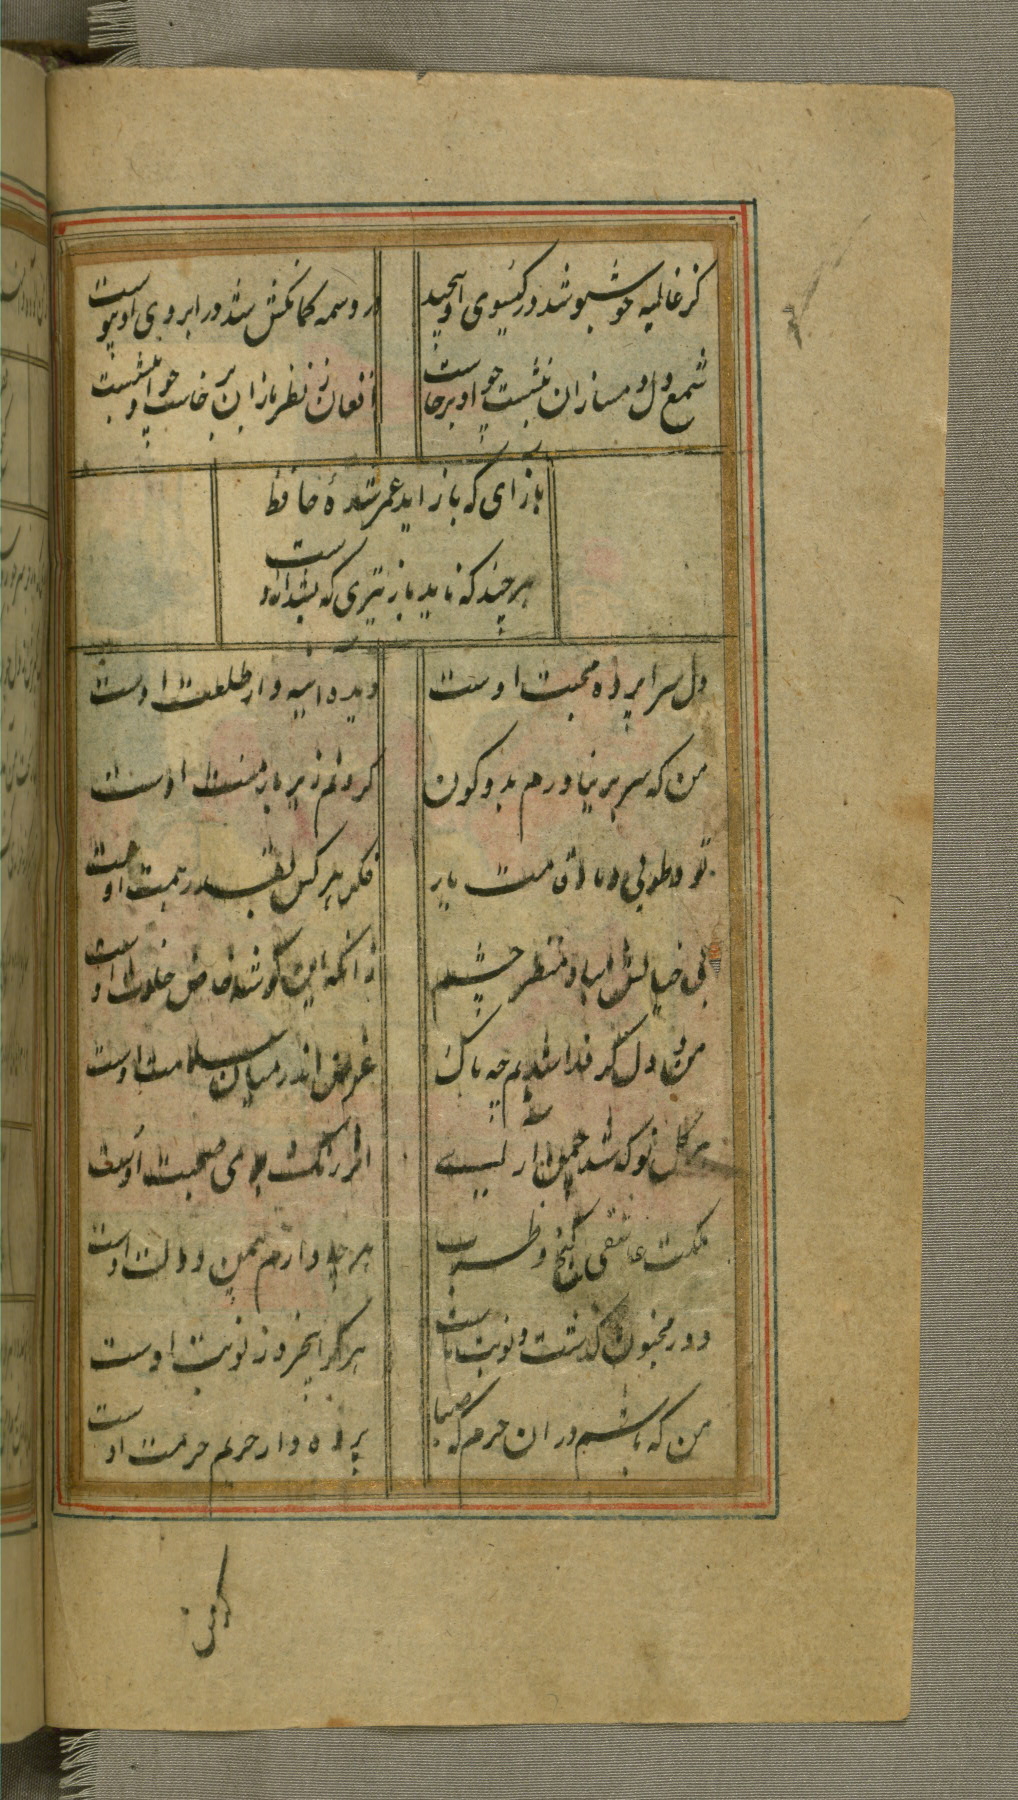 گر غالیه خوشبو شد در گیسوی او پیچید
ور وسمه کمانکش شد در ابروی او پیوست
شمع دل دمسازان بنشست چو او برخاست
افغان ز نظربازان برخاست چو او بنشست
باز آی که باز اید عمر شدهٔ حافظ
هرچند که ناید باز تیری که بشد از شست
دل سراپرده محبت اوست
دیده ائینه دار طلعت اوست
من که سر بر نیاورم بدو کون
گردنم زیر بار منت اوست
تو و طوبی و ما و قامت یار
فکر هر کس بقدر همت اوست
بی خیالش مباد منظر چشم
زانکه این گوشه خاص خلوت اوست
من و دل گر فدا شدیم چه باک
غرض اندر میان سلامت اوست
هر گل نو که شد چمن ارای
اثر رنک و بوی صحبت اوست
ملکت عاشقی و گنج طرب
هر چه دارم بیمن دولت اوست
دور مجنون گذشت و نوبت ماست
هر کرا پنجروز نوبت اوست
من که باشم در ان حرم که صبا
پرده دار حریم حرمت اوست
گر من